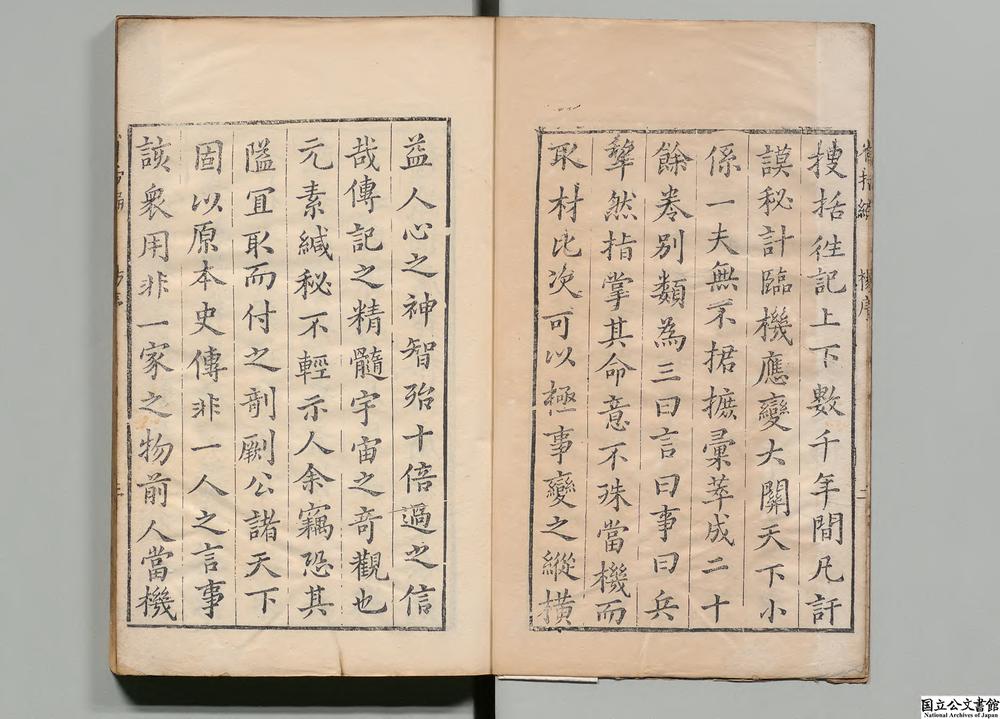 搜括徃記上下數千年間凡訏
謨秘計臨機應變大關天下小
係一夫無不捃摭彙萃成二十
餘卷別類為三曰言曰事曰兵
犂然指掌其命意不殊當機而
取材比次可以極事變之縱橫
益人心之神智殆十倍過之信
哉傳記之精髓宇宙之竒觀也
元素緘秘不輕示人余竊恐其
隘冝取而付之剞劂公諸天下
固以原本史傳非一人之言事
該衆用非一家之物前人當機
国立公文書館
National Archives of Japan